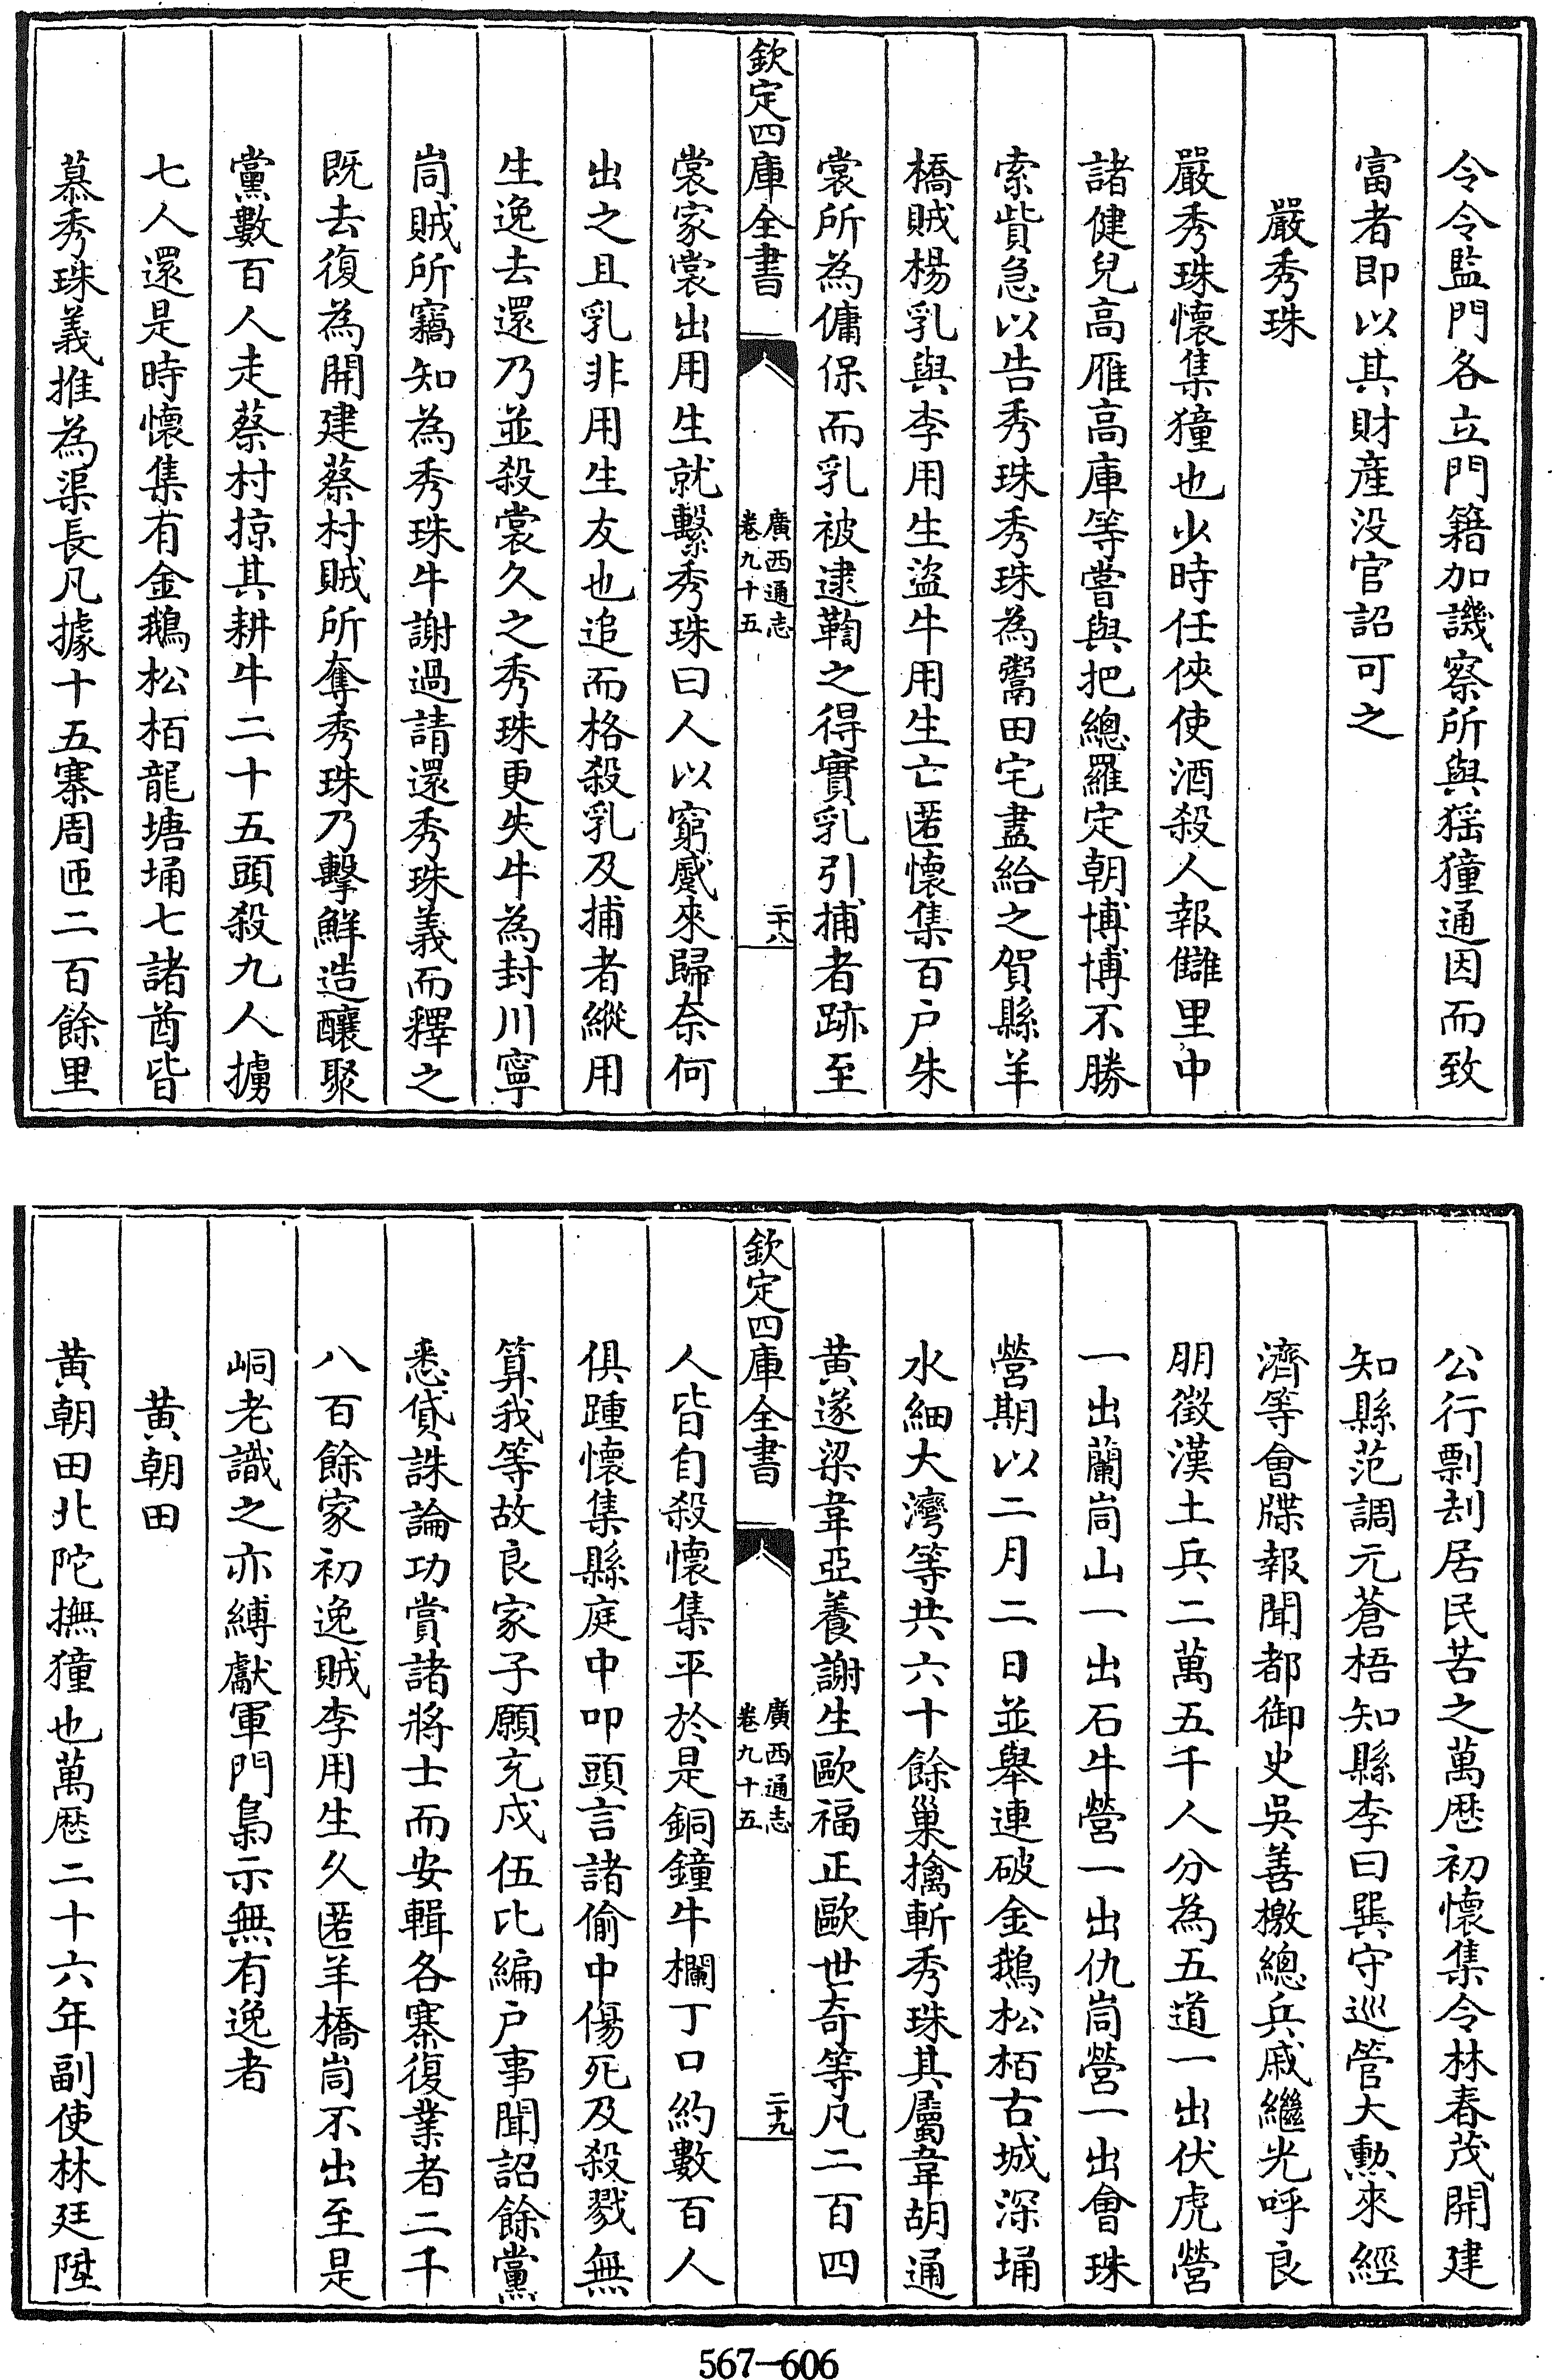 令令監門各立門籍加譏察所與猺獞通因而致
富者即以其財產没官詔可之
嚴秀珠
嚴秀珠懷集獞也少時任俠使酒殺人報讎里中
諸健兒高雁高庫等嘗與把總羅定朝博博不勝
索貲急以告秀珠秀珠為鬻田宅盡給之賀縣羊
橋賊楊乳與李用生盜牛用生亡匿懷集百户朱
裳所為傭保而乳被逮鞫之得實乳引捕者跡至
欽定四庫全書
廣西通志
卷九十五
二十八
裳家裳出用生就繫秀珠曰人以窮蹙來歸奈何
出之且乳非用生友也追而格殺乳及捕者縱用
生逸去還乃並殺裳久之秀珠更失牛為封川寧
峝賊所竊知為秀珠牛謝過請還秀珠義而釋之
既去復為開建蔡村賊所奪秀珠乃擊鮮造釀聚
黨數百人走蔡村掠其耕牛二十五頭殺九人擄
七人還是時懷集有金鵝松栢龍塘埇七諸酋皆
慕秀珠義推為渠長凡據十五寨周匝二百餘里
公行剽刦居民苦之萬厯初懷集令林春茂開建
知縣范調元蒼梧知縣李曰巽守巡管大勲來經
濟等會牒報聞都御史吳善檄總兵戚繼光呼良
朋徵漢土兵二萬五千人分為五道一出伏虎營
一出蘭峝山一出石牛營一出仇峝營一出會珠
營期以二月二日並舉連破金鵝松栢古城深埇
水細大灣等共六十餘巢擒斬秀珠其屬韋胡通
黄遂梁韋亞養謝生歐福正歐世奇等凡二百四
欽定四庫全書
廣西通志
卷九十五
二十九
人皆自殺懷集平於是銅鐘牛欄丁口約數百人
俱踵懷集縣庭中叩頭言諸偷中傷死及殺戮無
算我等故良家子願充戍伍比編户事聞詔餘黨
悉貸誅論功賞諸將士而安輯各寨復業者二千
八百餘家初逸賊李用生久匿羊橋峝不出至是
峒老識之亦縛獻軍門梟示無有逸者
黄朝田
黄朝田北陀撫獞也萬厯二十六年副使林廷陞
567-606